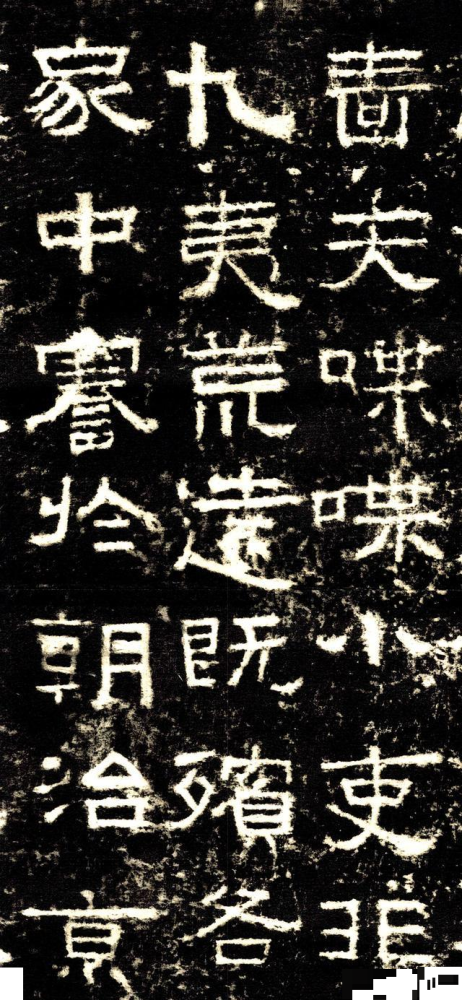 嗇夫喋喋小吏非
九夷荒遠既殯各
家中謇於朝治京